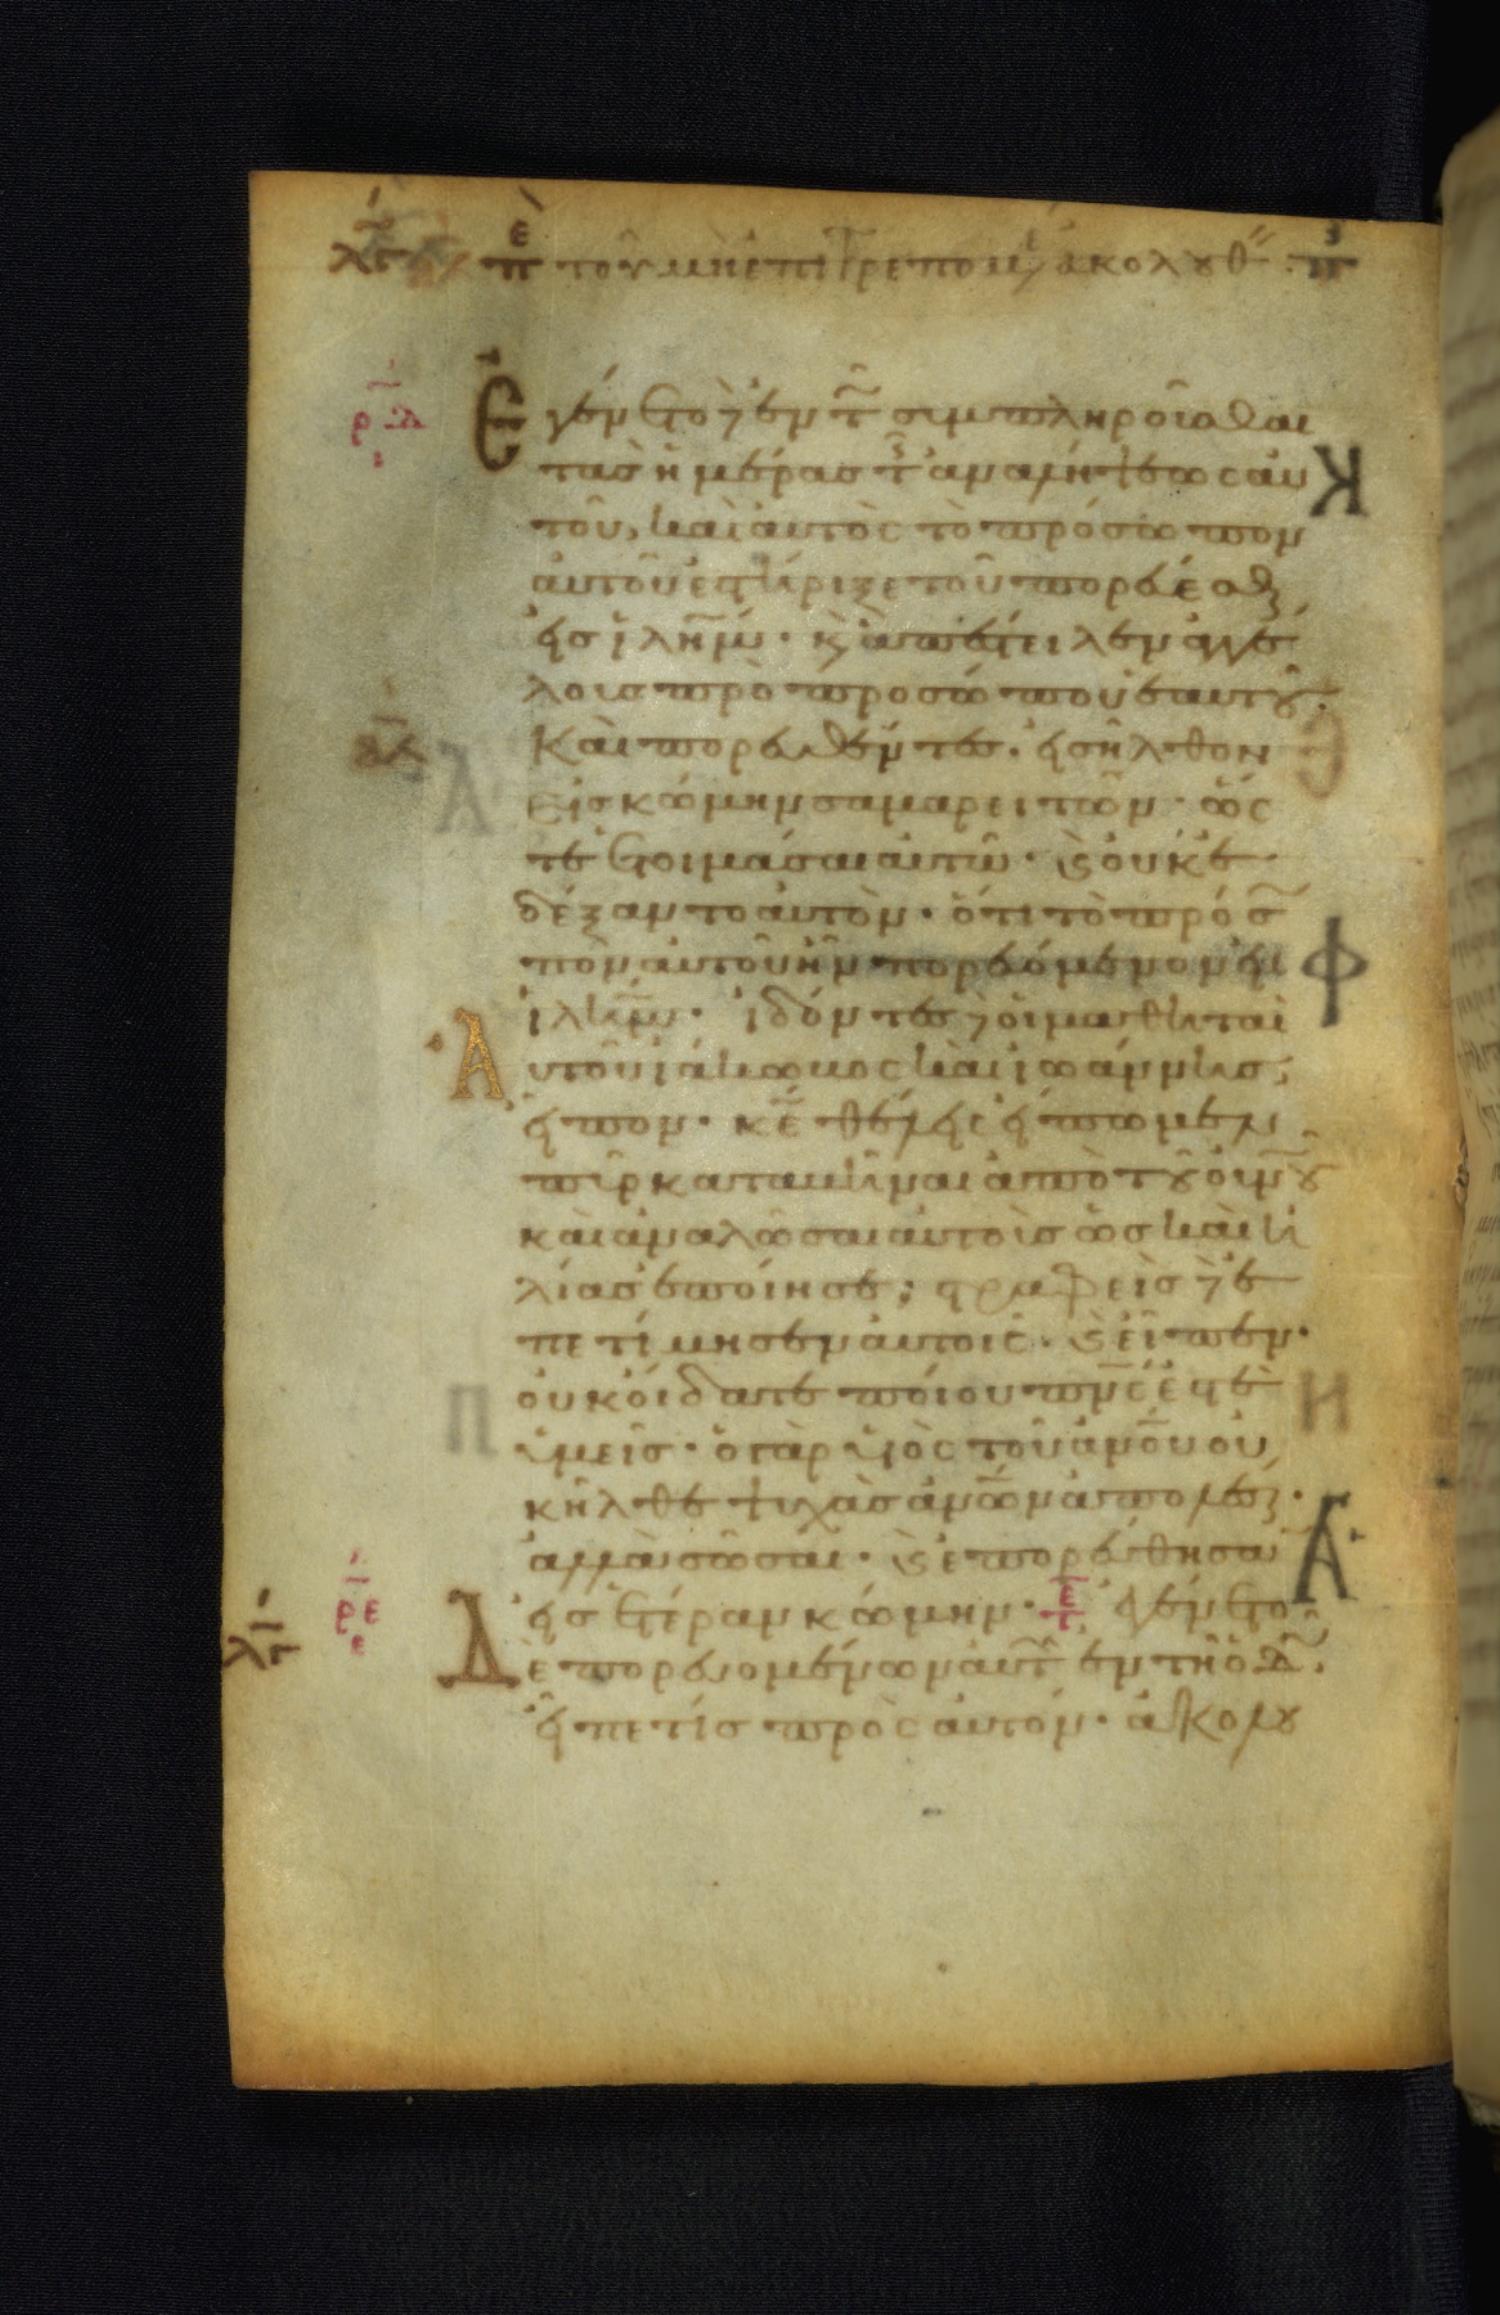 τοῦ μὴ ἐπιτρεπομ ἀκολουθ
Ἐγένετο δὲ ἐν τ συμπληροῦσθαι
τὰς ἡμέρας τ ἀναλήψεως αὐ
τοῦ, καὶ αὐτὸς τὸ πρόσωπον
αὐτοῦ ἐστήριξε τοῦ πορεύεσθ
εἰς ἰλημ· κ ἀπέστειλεν ἀγγέ
λους πρὸ προσώπου ἑαυτοῦ.
Καὶ πορευθέντες· εἰσῆλθον
εἰς κώμην σαμαρειτῶν· ὥς
τε ἑτοιμάσαι αὐτῶ· κ οὐκ ἐ
δέξαντο αὐτὸν· ὅτι τὸ πρόσ
πον αὐτοῦ ἦν πορευόμενον εἰς
ἰλημ· ἰδόντες δὲ οἱ μαθηταὶ
Αυτοῦ ἰάκωβος καὶ ἰωάννης,
εἶπον· κε θέλεις εἴπωμεν
πῦρ καταβῆναι ἀπὸ τοῦ οὐνου
καὶ ἀναλῶσαι αὐτοὺς ὡς καὶ ἠ
λίας ἐποίησε; στραφεὶς δὲ ἐ
πετίμησεν αὐτοῖς· κ εἶπεν·
οὐκ οἴδατε ποίου πνς ἐστὲ
ὑμεῖς· ὁ γὰρ υἱὸς τοῦ ανου οὐ
κ ἦλθε ψυχὰς ανων ἀπολέσ·
ἀλλὰ σῶσαι· κ ἐπορεύθησαν
εἰς ἑτέραν κώμην· ἐγένετο
Δὲ πορευομένων αὐτ ἐν τῆ ὁδ,
εἶπέ τις πρὸς αὐτόν· ἀκολου